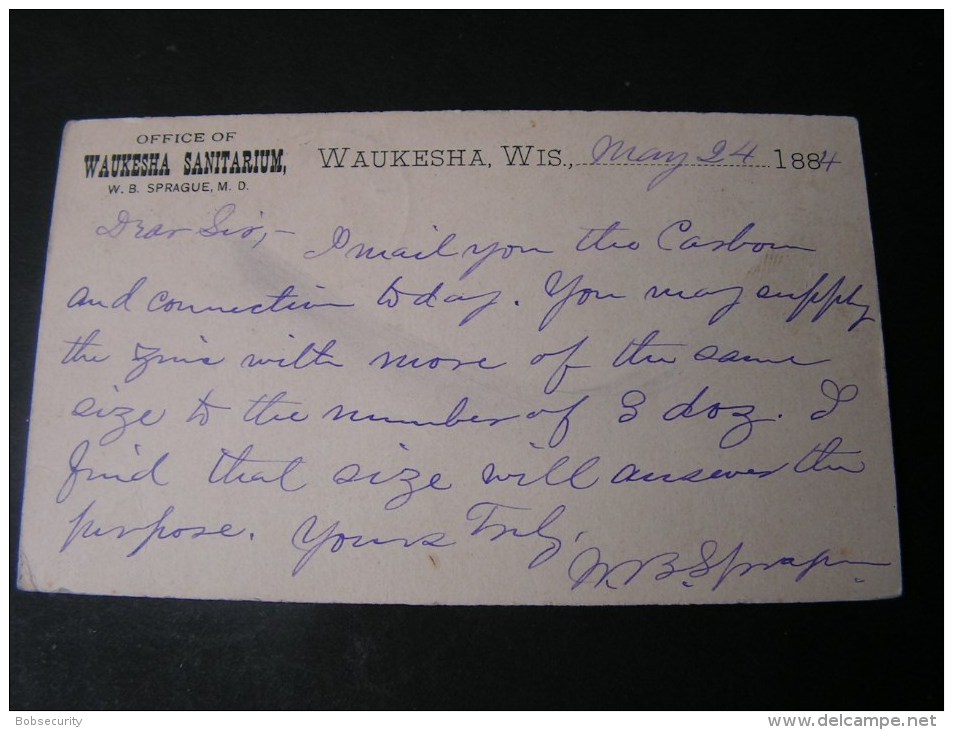 OFFICE OF
WAUKESHA SANITARIUM,
W. B. SPRAGUE, M. D.
WAUKESHA, WIS., May 24 1884
Dear Sir,- I mail you the Carbon
and connection today. You may supply
the zinc with more of the same
size to the number of 3 doz. I
find that size will answer the
purpose. Yours Truly,
W. B. Sprague
Bobsecurity
www.delcampe.net